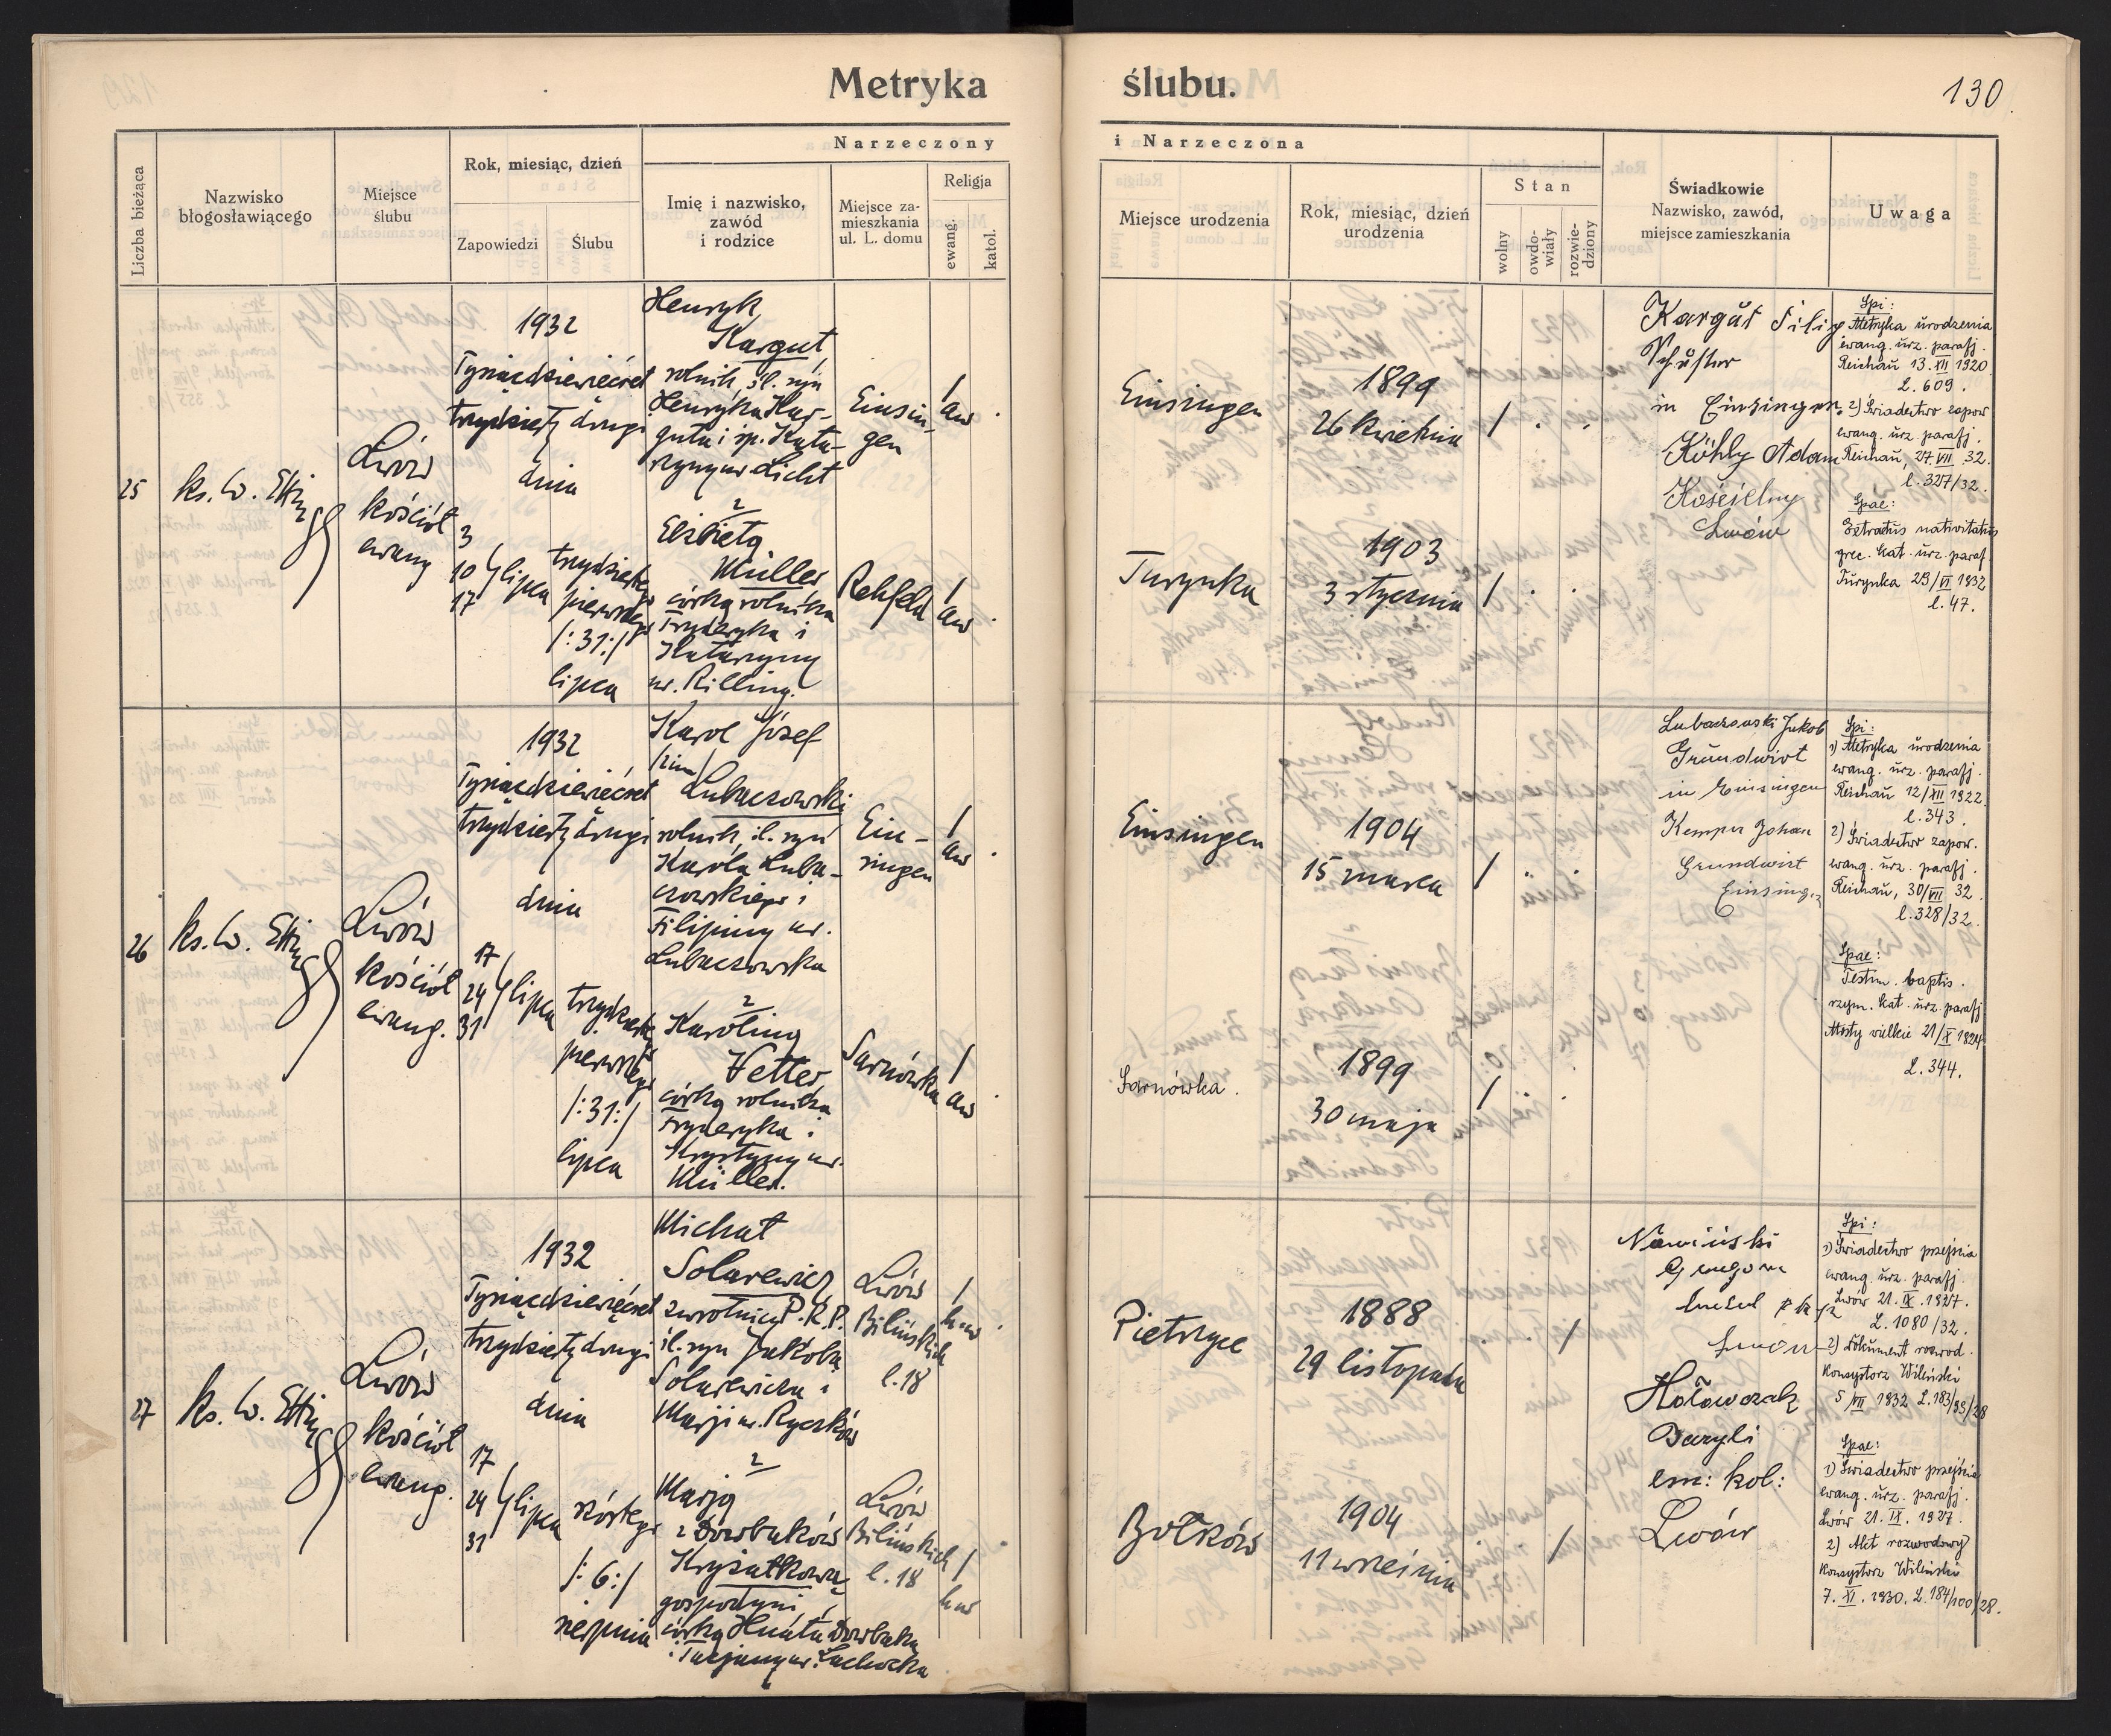 Metryka ślubu.
130
Narzeczony i Narzeczona
Liczba bieżąca
Nazwisko
błogosławiącego
Miejsce
ślubu
Rok, miesiąc, dzień
Zapowiedzi
Ślubu
Imię i nazwisko,
zawód
i rodzice
Miejsce za-
mieszkania
ul. L. domu
Religja
ewang.
katol.
Miejsce urodzenia
Rok, miesiąc, dzień
urodzenia
Stan
wolny
owdo-
wiały
rozwie-
dziony
Świadkowie
Nazwisko, zawód,
miejsce zamieszkania
Uwaga
25
ks. W.
Lwów
kościół
ewang
1932
Tysiącdziewięćset
trzydziesty drugi
dnia
3
10
17
lipca
trzydziestego
pierwszego
/:31:/
lipca
Henryk
Kargut
rolnik, śl. syn
Henryka Kar-
guta i śp. Kata-
rzyny ur. Licht
2
Elżbieta
Müller
córka rolnika
Fryderyka i
Katarzyny
ur. Rilling.
Einsin-
gen
Rehfeld
1
aw
1
aw
Einsingen
Turynka
1899
26 kwietnia
1903
3 stycznia
1
1
Kargut Filip
in Einsingen
Köhly Adam
Kościelny
Lwów
Spi:
Metryka urodzenia
ewang. urz. parafj.
Reichau 13.XII 1920
L. 609.
2) Świadectwo zapow
ewang. urz. parafj.
Reichau, 27.VII 32.
l. 327/32.
Spae:
Extractus nativitatis
grec. kat. urz. paraf.
Turynka 23/VI 1932
l. 47.
26
ks. W.
Lwów
kościół
ewang.
1932
Tysiącdziewięćset
trzydziesty drugi
dnia
17
24
31
lipca
trzydziestego
pierwszego
/:31:/
lipca
Karol Józef
/2im/
Lubaczowski
rolnik, śl. syn
Karola Luba-
czowskiego i
Filipiny ur.
Lubaczowska
2
Karolina
Vetter
córka rolnika
Fryderyka i
Krystyny ur.
Müller.
Ein-
singen
Sarnówka
1
aw
1
aw
Einsingen
Sarnówka.
1904
15 marca
1899
30 maja
1
1
Lubaczowski Jakob
Grundwirt
in Einsingen
Kemper Johan
Grundwirt
Spi:
1) Metryka urodzenia
ewang. urz. parafj.
Reichau 12/XII 1922.
l. 343.
2) Świadectwo zapow.
ewang. urz. parafj.
Reichau, 30/VII 32.
l. 328/32.
Spae:
Testim. baptis.
rzym. kat. urz. parafj.
Mosty wielkie 21/X 1924
L. 344.
27
ks. W.
Lwów
kościół
ewang.
1932
Tysiącdziewięćset
trzydziesty drugi
dnia
17
24
31
lipca
szóstego
/:6:/
sierpnia
Michał
Solarewicz
zwrotniczy P.K.P.
śl. syn Jakóba
Solarewicza i
Marji ur. Ryczków
2
Marja
z Dowbaków
Kryżałkowa
gospodyni,
córka Hnata Dowbaka
i Tacjany ur. Lachocka
Lwów
Bilińskich
l. 18
Lwów
Bilińskich
l. 18
1
haw
1
haw
Pietrzyce
Bołków
1888
29 listopada
1904
11 września
1
1
Lwów
Hołowczak
Bazyli
em: kol:
Lwów
Spi:
1) Świadectwo przejścia
ewang. urz. parafj.
Lwów 21.IX.1927.
L. 1080/32.
2) Dokument rozwod.
Konsystorz Wileński
5/VII 1932 L. 183/99/28
Spae:
1) Świadectwo przejścia
ewang. urz. parafj.
Lwów 21.IX.1927.
2) Akt rozwodowy
Konsystorz Wileński
7.XI.1930. L. 184/100/28.